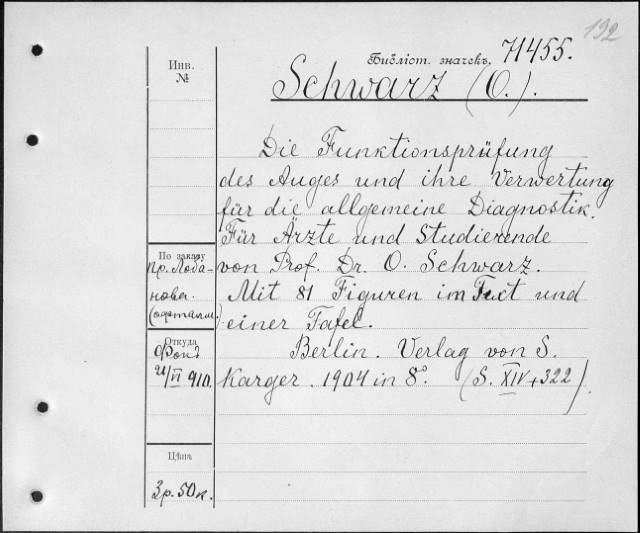 192
Библіот. значекъ. 71455.
Инв.
№
Schwarz (O.).
Die Funktionsprüfung
des Auges und ihre Verwertung
für die allgemeine Diagnostik.
Für Ärzte und Studierende
von Prof. Dr. O. Schwarz.
Mit 81 Figuren im Text und
einer Tafel.
Berlin. Verlag von S.
Karger. 1904 in 8°. (S. XIV+322).
По заказу
пр. Лоба-
нова.
(офталм.)
Откуда
Фонд
21/VI 910.
Цѣна
3р. 50к.